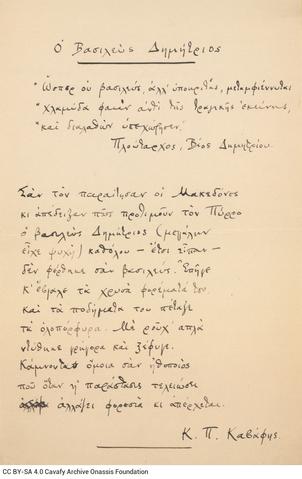 Ὁ Βασιλεὺς Δημήτριος
"Ὥσπερ οὐ βασιλεύς, ἀλλ' ὑποκριτής, μεταμφιέννυται
"χλαμύδα φαιὰν ἀντὶ τῆς τραγικῆς ἐκείνης,
"καὶ διαλαθὼν ὑπεχώρησεν.
Πλούταρχος, Βίος Δημητρίου.
Σὰν τὸν παραίτησαν οἱ Μακεδόνες
κι ἀπέδειξαν πῶς προτιμοῦν τὸν Πύρρο
ὁ βασιλεὺς Δημήτριος (μεγάλην
εἶχε ψυχή) καθόλου — ἔτσι εἶπαν —
δὲν φέρθηκε σὰν βασιλεύς. Ἐπῆγε
κ' ἔβγαλε τὰ χρυσᾶ φορέματά του,
καὶ τὰ ποδήματά του πέταξε
τὰ ὁλοπόρφυρα. Μὲ ροῦχ' ἁπλᾶ
ντύθηκε γρήγορα καὶ ξέφυγε.
Κάμνοντας ὅμοια σὰν ἠθοποιὸς
ποῦ ὅταν ἡ παράστασις τελειώσει
ἀλλάζει φορεσιὰ κι ἀπέρχεται.
Κ. Π. Καβάφης.
CC BY-SA 4.0 Cavafy Archive Onassis Foundation